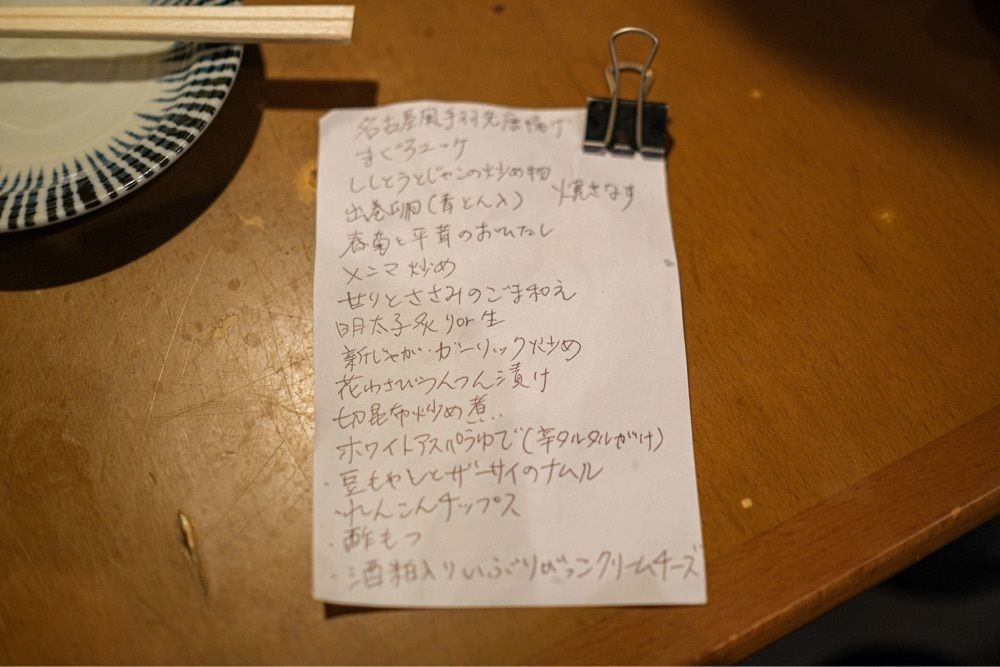 名古屋風手羽先唐揚げ
まぐろユッケ
ししとうとじゃこの炒め物
焼きなす
出巻卵(青とん入)
春菊と平茸のおひたし
メンマ炒め
せりとささみのごま和え
明太子炙りor生
新じゃが・ガーリック炒め
花わさびつんつん漬け
切昆布炒め煮
ホワイトアスパラゆで(辛タルタルがけ)
・豆もやしとザーサイのナムル
・れんこんチップス
・酢もつ
・酒粕入りいぶりがっこクリームチーズ